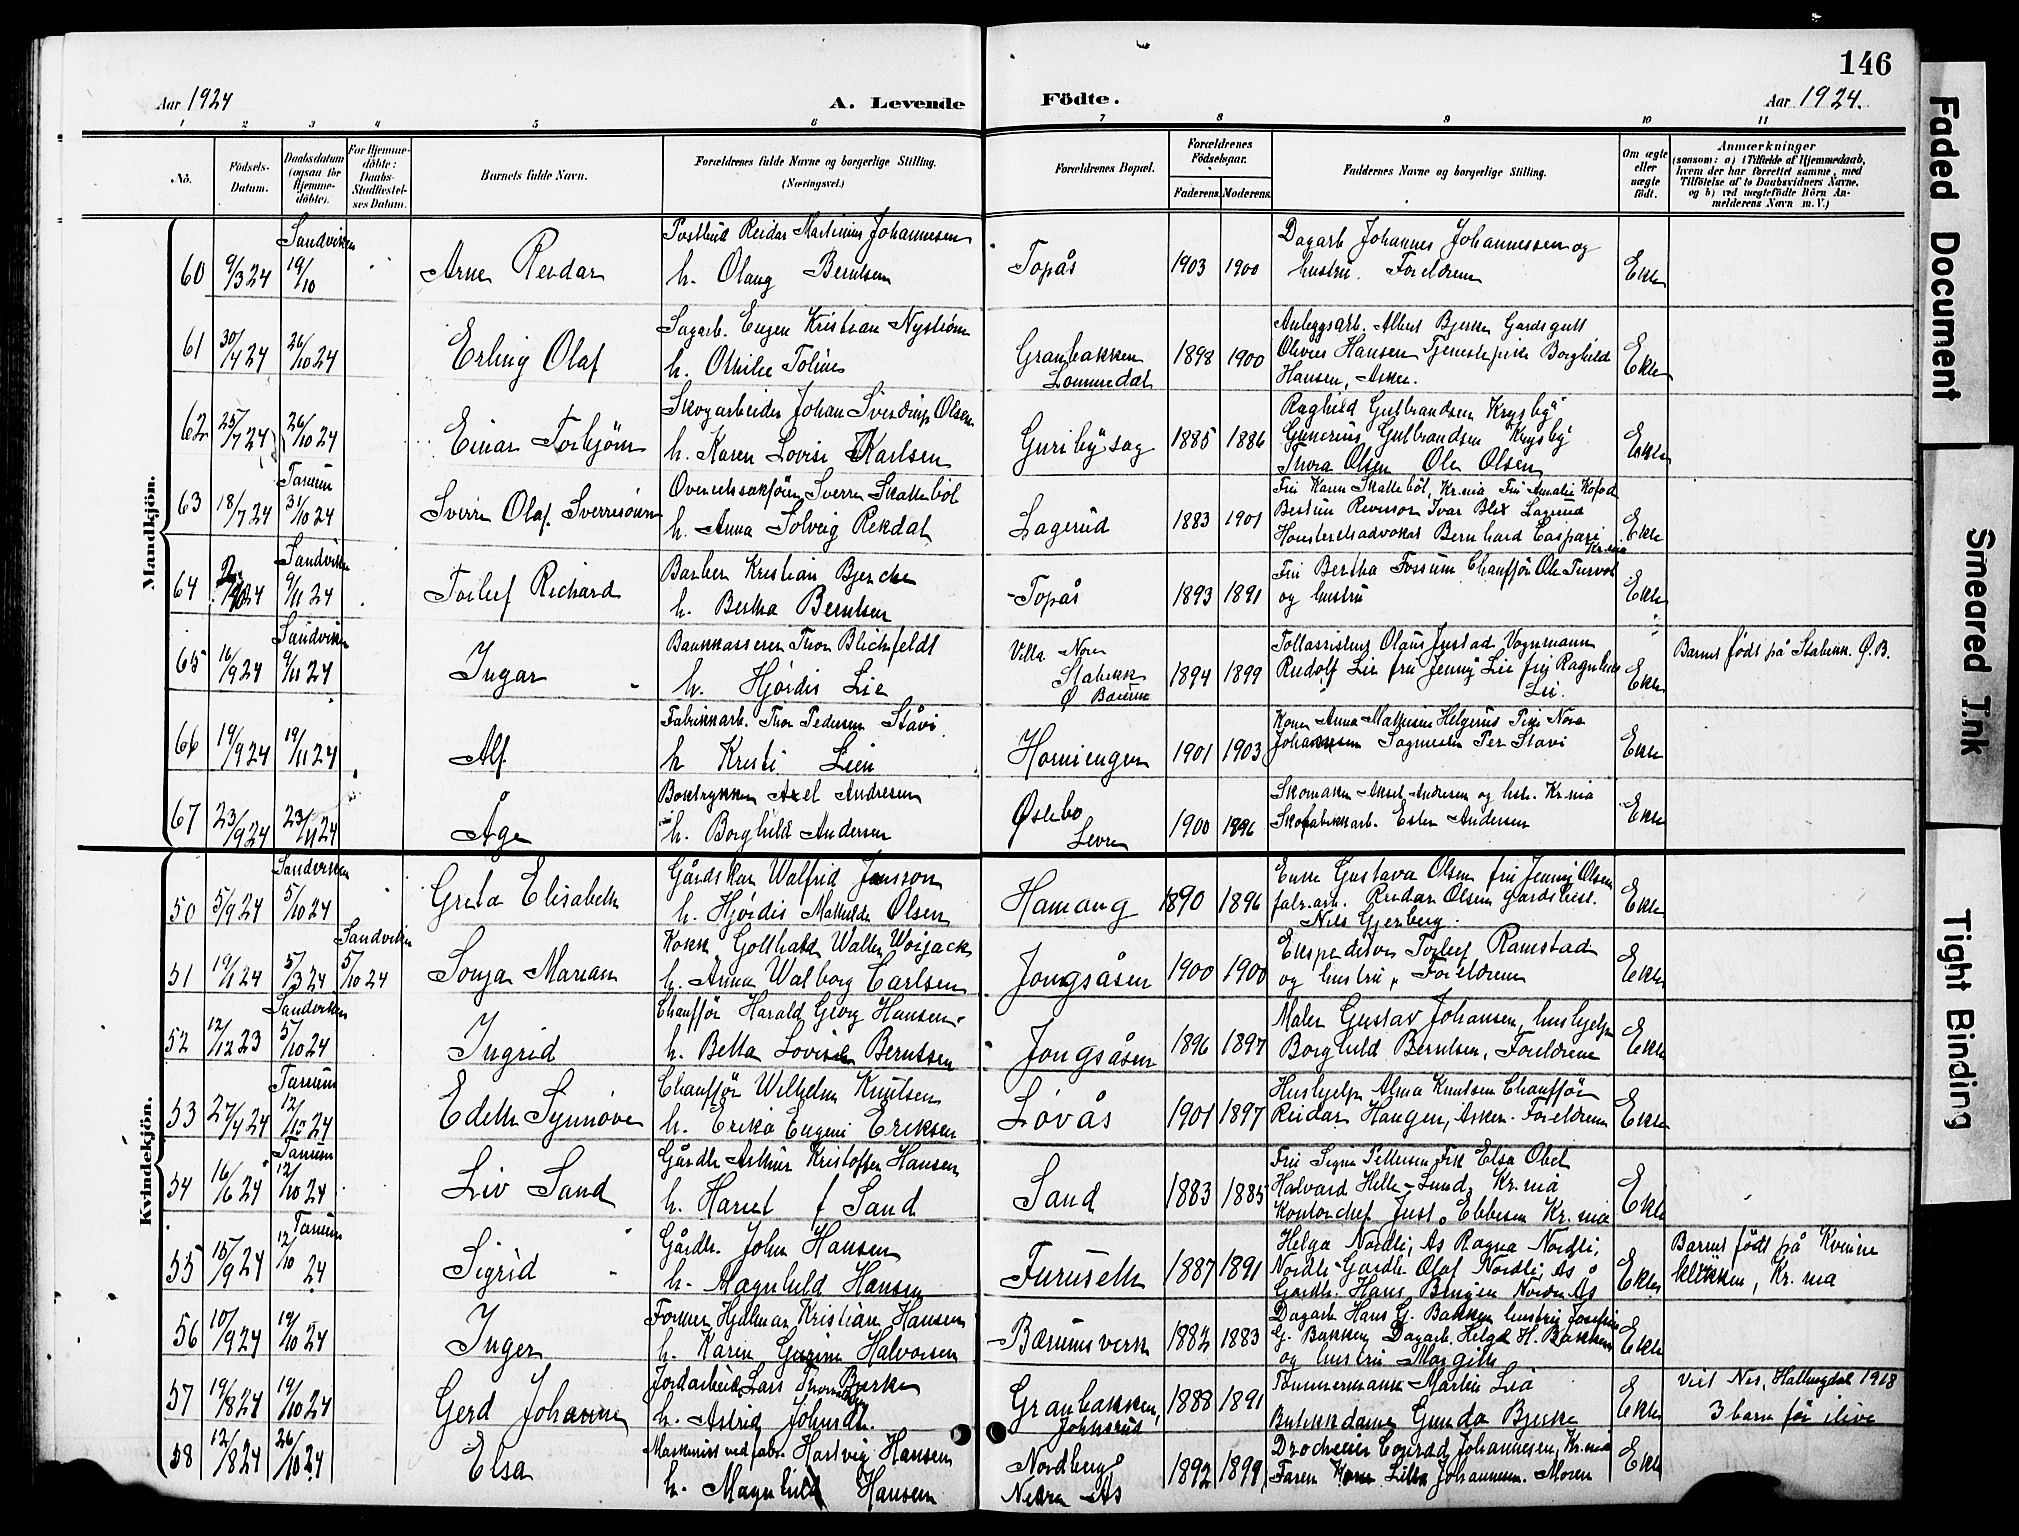 146
Aar 1924
A. Levende
Födte.
Aar 1924.
1 2 3 4 5 6 7 8 9 10 11
No.
Födsels-
Datum.
Daabsdatum
(ogsaa for
Hjemme-
döbte).
For Hjemme-
döbte:
Daabs-
Stadfæstel-
ses Datum.
Barnets fulde Navn.
Forældrenes fulde Navne og borgerlige Stilling.
(Næringsvei.)
Forældrenes Bopæl.
Forældrenes
Födselsaar.
Faderens.
Moderens.
Faddernes Navne og borgerlige Stilling.
Om ægte
eller
uægte
födt.
Anmærkninger
(saasom: a) i Tilfælde af Hjemmedaab,
hvem der har forrettet samme, med
Tilföielse af to Daabsvidners Navne,
og b) ved uægtefödte Börn An-
melderens Navn m. V.)
Mandkjön.
Sandviken Postbud Reidar Martinius Johannesen Dagarb Johannes Johannessen og
60 9/3 24 19/10 Arne Reidar h. Olaug Berntsen Topås 1903 1900 hustru. Foreldrene Ekte
Sagarb. Eugen Kristian Nystrøm Anleggsarb. Albert Bjerke Gardsgutt
61 30/4 24 26/10 24 Erling Olaf h. Othilie Granbakken 1898 1900 Hansen Tjenestepike Borghild Ekte
Lommedal Hansen, Asker.
Skogarbeider Johan Sverdrup Olsen Raghild Gulbrandsen Krysby
62 25/7 24 26/10 24 Einar Torbjørn h. Karen Lovise Karlsen Guribysag 1885 1886 Gunerius Gulbrandsen Krysby Ekte
Thora Olsen Ole Olsen
Tanum Sverre Skattebøl Fru Karen Skattebøl, Kr.nia Fru Amalie Kofod
63 18/7 24 31/10 24 Sverre Olaf Sverresønn h. Anna Solveig Rekdal Lagerud 1883 1901 Revisor Ivar Blix Lagerud Ekte
Bernhard Caspari Kr.nia
Sandviken Barber Kristian Bjercke Fru Bertha Fossum Chauffør Ole
64 9/11 24 Torleif Richard h. Bertha Berntsen Topås 1893 1891 og hustru Ekte
Sandviken Bankkasserer Thor Blichfeldt Villa Nore Tollassistent Olaus Justad Vognmann Barnet født på Stabekk. Ø. B.
65 16/9 24 9/11 24 Ingar h. Hjørdis Lie Stabekk 1894 1899 Rudolf Lie fru Jenny Lie frk Ragnhild Ekte
Ø Bærum Lie.
Fabrikkarb. Thor Pedersen Stavi Kone Anna Mathesen Helgerus Pike Nora
66 19/9 24 19/11 24 Alf h Kristi Lien Horniengen 1901 1903 Johannesen Sagmester Per Stavi Ekte
Boktrykker Axel Andresen Øslebo Skomaker Aksel Andresen og hst. Kr.nia
67 23/9 24 23/11 24 Åge h. Borghild Andersen Levre 1900 1896 Skofabrikkarb. Ester Andersen Ekte
Kvindekjön.
Sandviken Gårdskar Walfrid Jansson Enke Gustava Olsen fru Jenny Olsen
50 5/9 24 5/10 24 Greta Elisabeth h. Hjørdis Mathilde Olsen Hamang 1890 1896 fabr.arb. Reidar Olsen gardsbest. Ekte
Nils Gjerberg.
Sandviken Kokk Gotthard Walter Woijack Ekspeditør Torleif Ramstad
51 19/1 24 5/3 24 5/10 24 Sonja Marian h. Anna Walborg Carlsen Jongsåsen 1900 1900 og hustru, Foreldrene Ekte
Sandviken Chauffør Harald Georg Hansen Maler Gustav Johansen, hushjelp
52 12/12 23 5/10 24 Ingrid h. Betta Lovise Berntsen Jongsåsen 1896 1897 Borghild Berntsen, Foreldrene Ekte
Tanum Chauffør Wilhelm Knutsen Hushjelp Alma Knutsen Chauffør
53 27/4 24 12/10 24 Edith Synnøve h. Erika Eugeni Eriksen Løvås 1901 1897 Reidar Haugen, Asker. Foreldrene Ekte
Tanum Gårdbr Arthur Kristoffer Hansen Fru Signe Pettersen Frk Elsa Obel
54 16/6 24 12/10 24 Liv Sand h. Harriet f Sand Sand 1883 1885 Halvard Helle-Lund, Kr.nia Ekte
Kontorchef Just Ebbesen Kr.nia
Tanum Gårdbr. John Hansen Helga Nordli, As Ragna Nordli, Barnet født på Kvinne
55 15/9 24 12/10 24 Sigrid h. Magnhild Hansen Furuseth 1887 1891 Nordli Gardbr. Olaf Nordli, As Ekte klikken, Kr.nia
Gardbr. Hans Bingen Nordre As
Former Hjalmar Kristian Hansen Dagarb Hans G. Bakken hustru Josefine
56 10/9 24 19/10 24 Inger h. Karen Gurine Halvorsen Bærumsverk 1882 1883 G. Bakken Dagarb. Helge H. Bakken Ekte
og hustru Margith
Jordarbeid. Lars Bjerke Granbakken, Tømmermann Martin Lia Viet Nes, Hallingdal 1918
57 19/8 24 19/10 24 Gerd Johanne h. Astrid Johnsrud 1888 1891 Butikkdame Gunda Bjerke Ekte 3 barn før ilive
Maskinist ved fabr. Hartvig Hansen Nordberg Conrad Johannesen, Kr.nia
58 12/8 24 26/10 24 Elsa h. Magnhild Hansen Nedre As 1892 1899 Faren Johannesen. Moren Ekte
Faded Document
Smeared Ink
Tight Binding